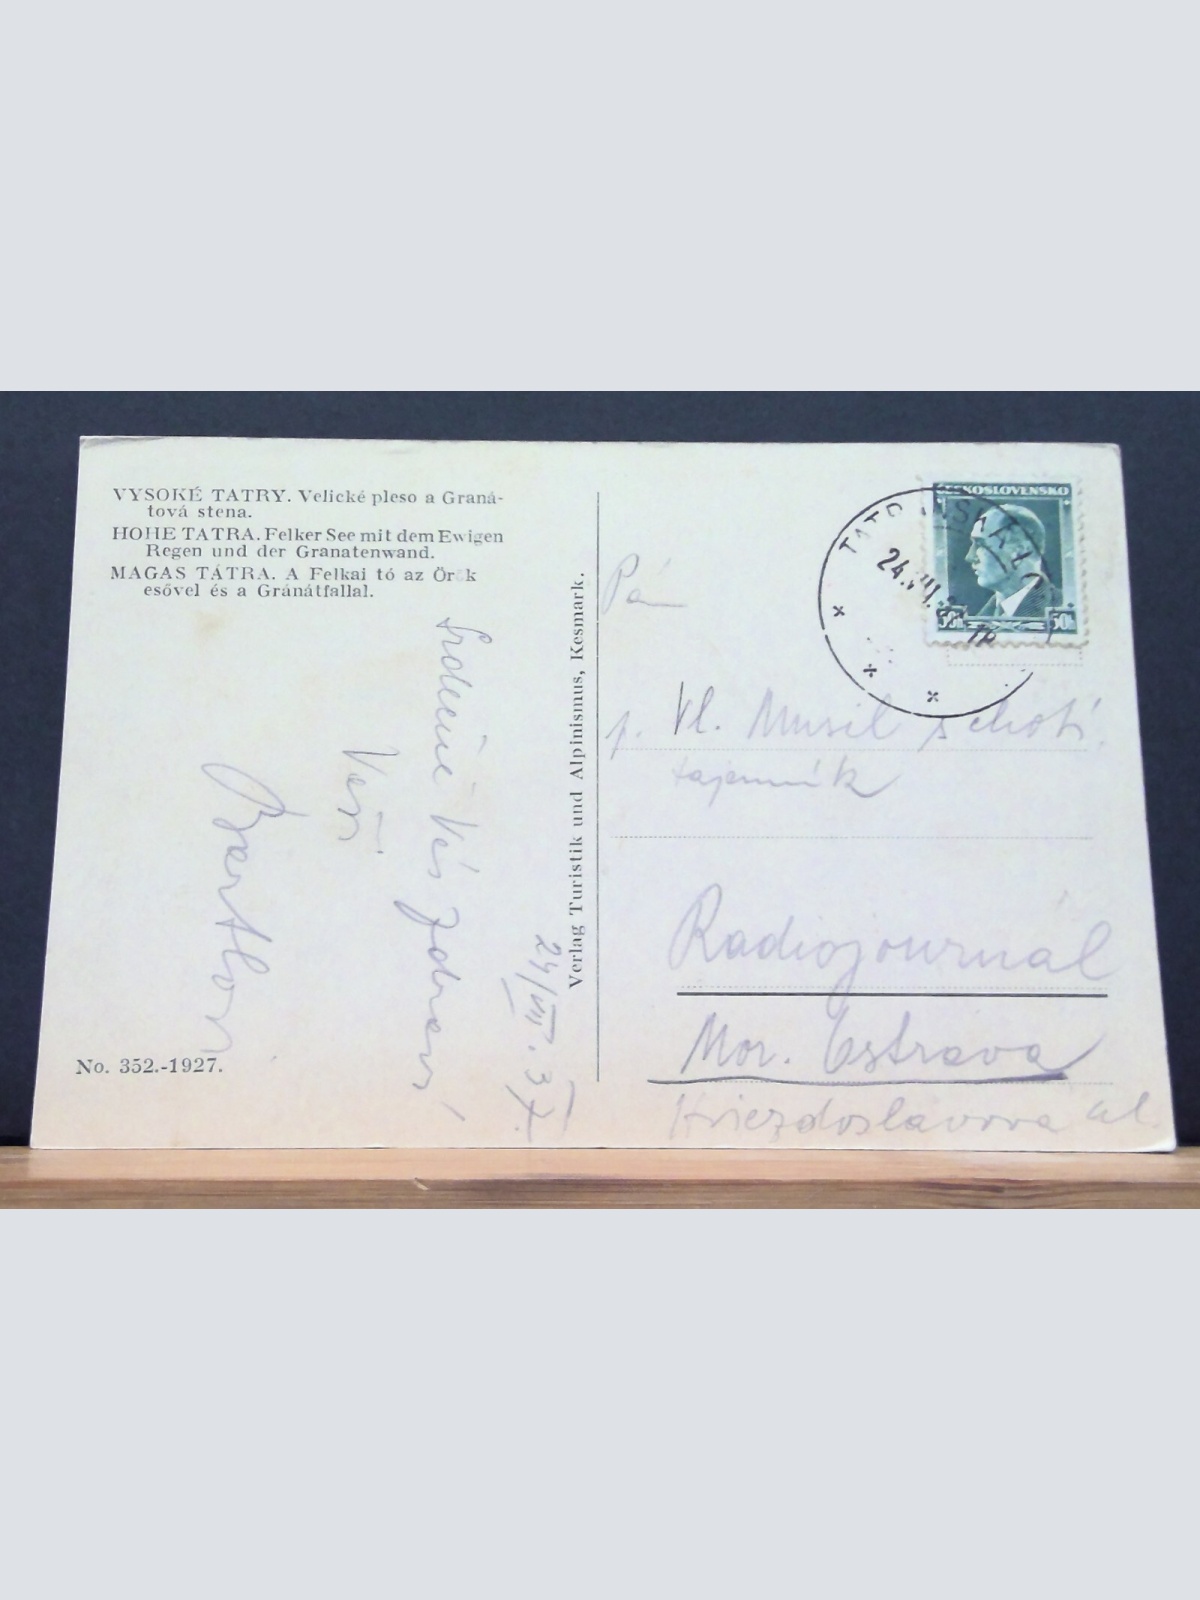 VYSOKÉ TATRY. Velické pleso a Graná-
tová stena.
HOHE TATRA. Felker See mit dem Ewigen
Regen und der Granatenwand.
MAGAS TÁTRA. A Felkai tó az Örök
esővel és a Gránátfallal.
Srdečně Vás zdraví
Váš
24/VIII. 37.
No. 352.-1927.
Verlag Turistik und Alpinismus, Kesmark.
ČESKOSLOVENSKO
50h 50h
TATRANSKÁ LO
24.VIII.
Pán
p. Vl. Musil
tajemník
Radiojournal
Mor. Ostrava
Hviezdoslavova ul.